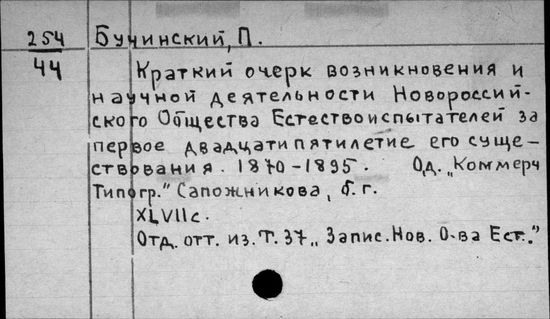 254 Бучинский, П.
44 Краткий очерк возникновения и
научной деятельности Новороссий-
ского Общества Естествоиспытателей за
первое двадцатипятилетие его суще-
ствования. 1870-1895. Од. „Коммерч
Типогр." Сапожникова, б. г.
XLVIIс.
Отд. отт. из. Т. 37 „Запис. Нов. О-ва Ест."